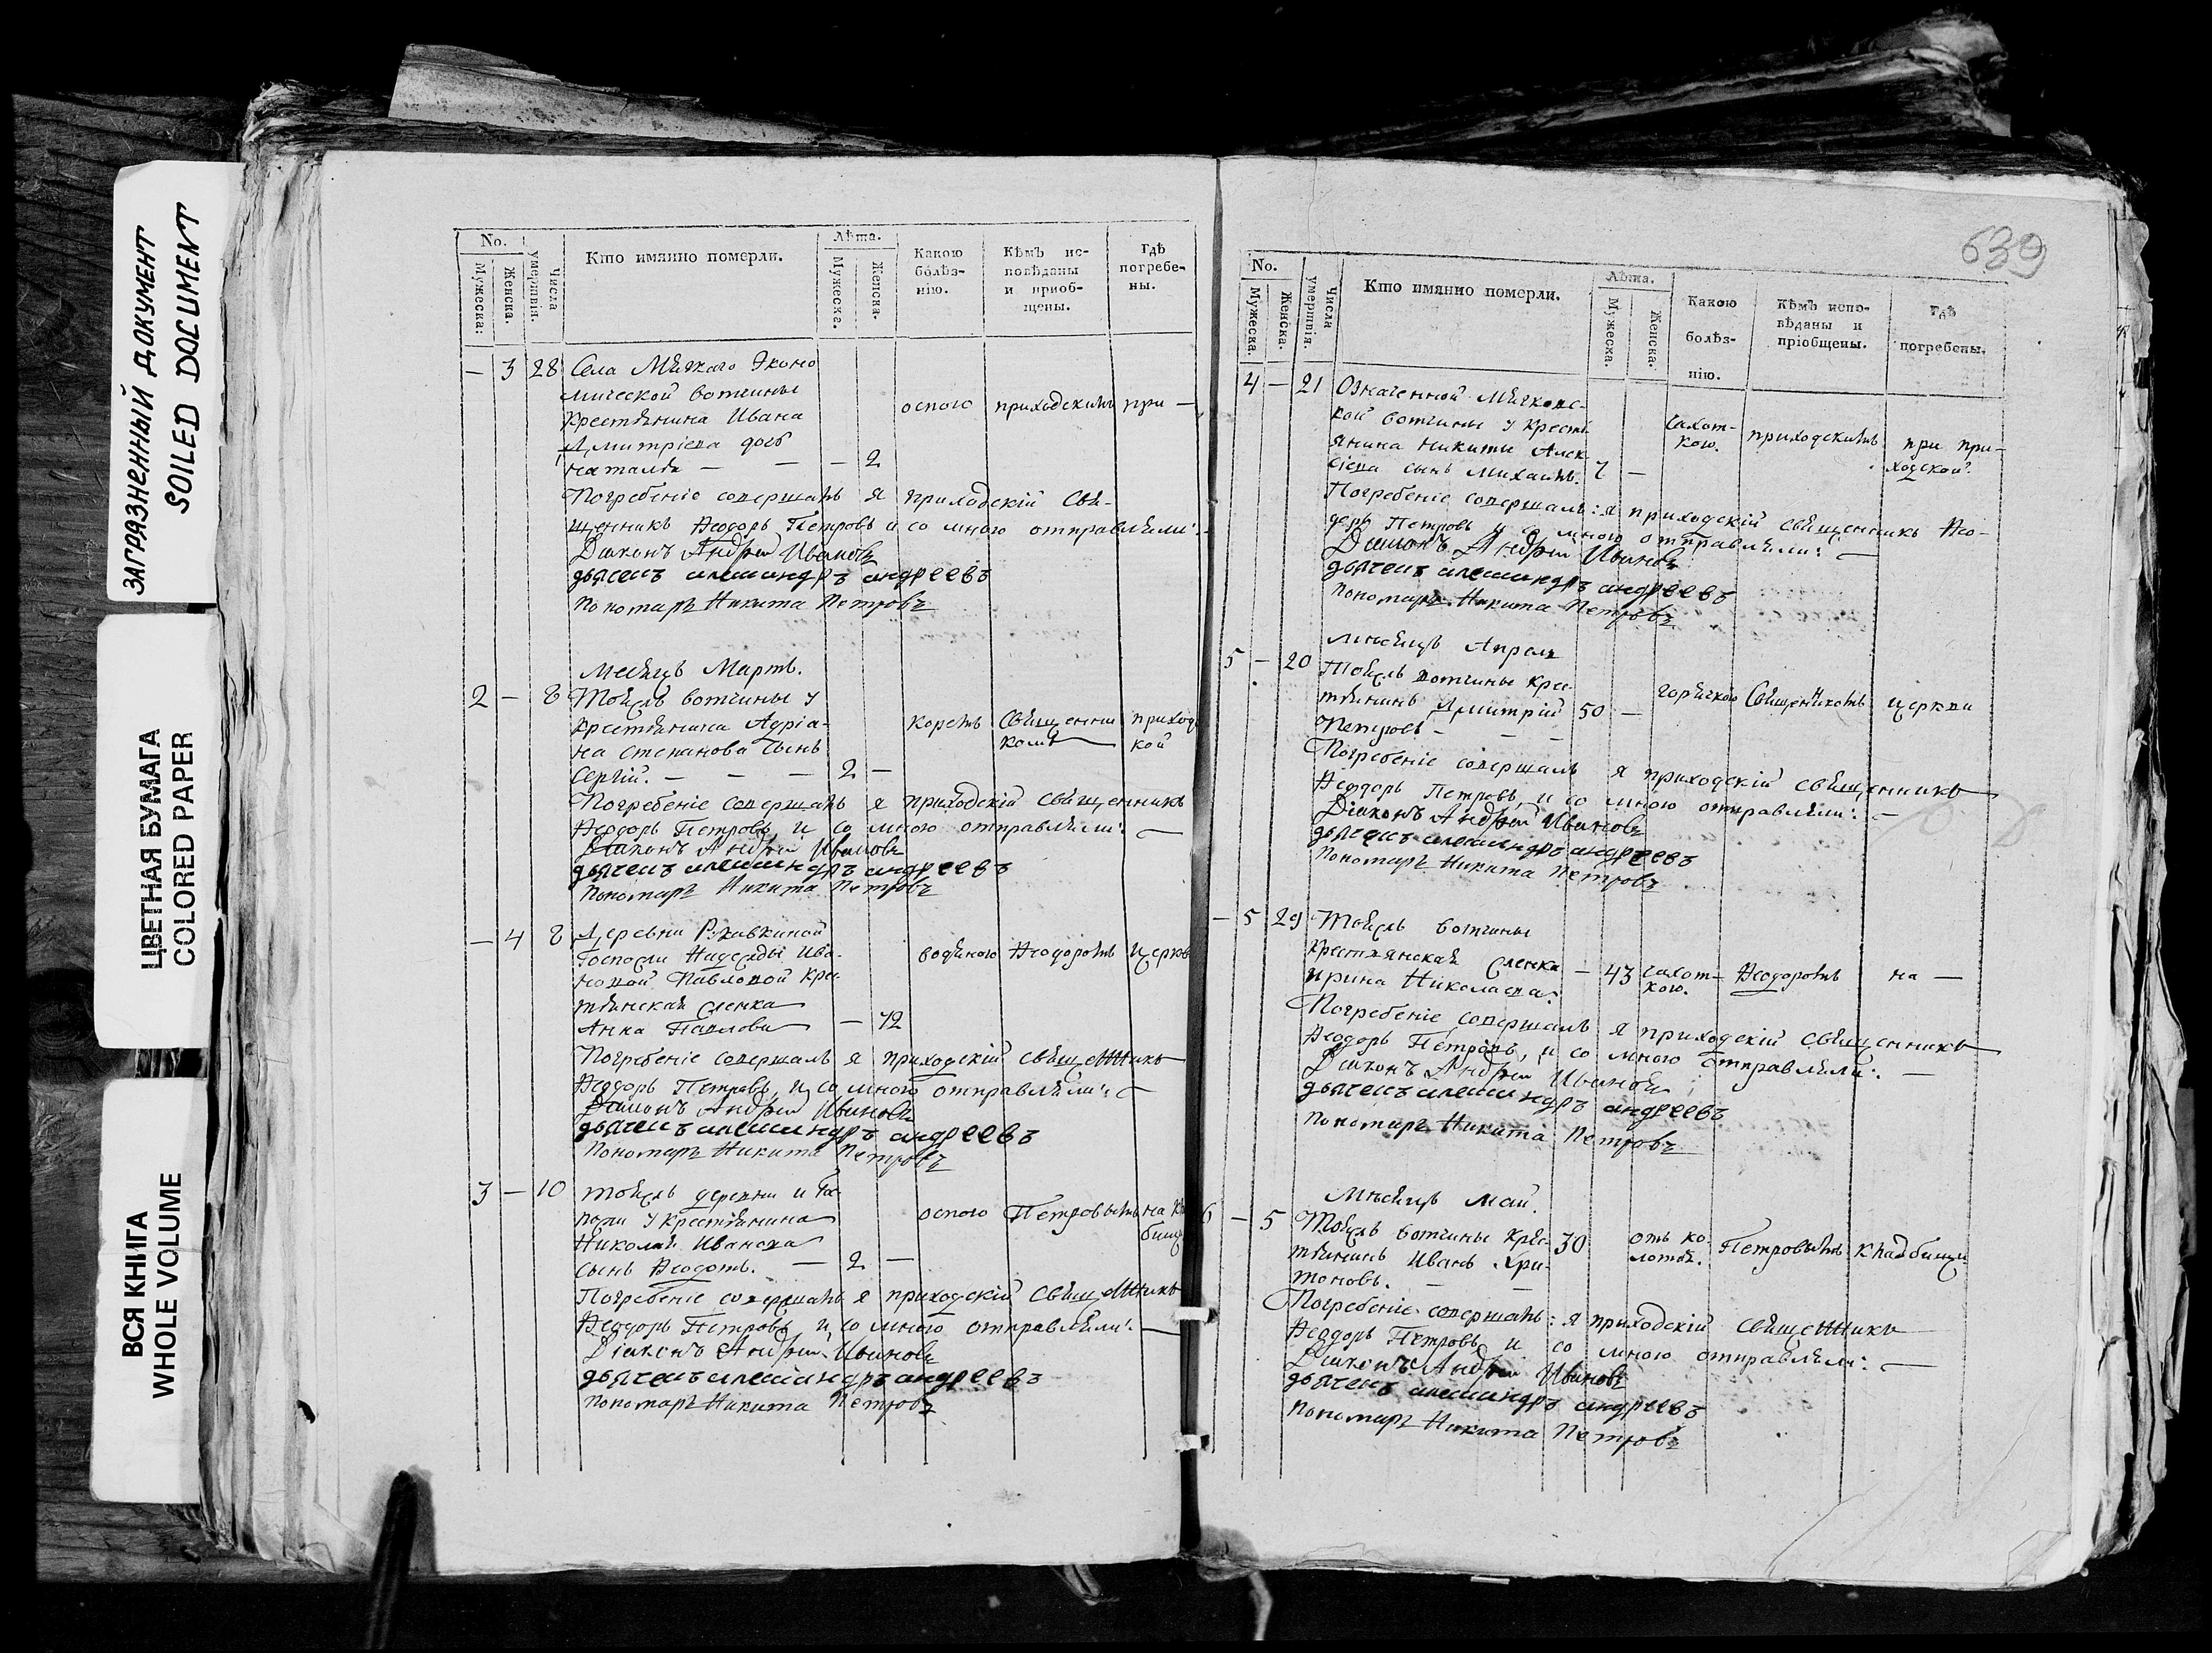 ЗАГРЯЗНЕННЫЙ ДОКУМЕНТ
SOILED DOCUMENT
ЦВЕТНАЯ БУМАГА
COLORED PAPER
ВСЯ КНИГА
WHOLE VOLUME
No.
Мужеска:
Женска.
Числа умершвія.
Кто имянно померли.
Лѣта.
Мужеска.
Женска.
Какою болѣз-
нію.
Кѣмъ ис-
повѣданы
и приоб-
щены.
Гдѣ
погребе-
ны.
— 3 28 Села Мячкаго Эконо
мической вотчины
крестьянина Ивана оспою приходскимъ при —
Дмитріева дочь
Наталья — — — 2
Погребеніе совершалъ я приходскій свя-
щенникъ Ѳеодоръ Петровъ и со мною отправляли:
Діаконъ Андрей Ивановъ
дьячекъ алешандръ андреевъ
пономарь Никита Петровъ
Месяцъ Мартъ.
2 — 8 Тойжъ вотчины у
крестьянина Адріа- корeть Священни приход
на степанова сынъ комъ кой
Сергій. — — — 2 —
Погребеніе совершалъ я приходскій священникъ
Ѳеодоръ Петровъ, и со мною отправляли: —
Діаконъ Андрей Ивановъ
дьячекъ алешандръ андреевъ
пономарь Никита Петровъ
— 4 8 Деревни Рукавкиной
Госпожи Надежды Ива- водяною Ѳеодоромъ церкв
новой Павловой кре
стьянская женка
Анна Павлова — 72
Погребеніе совершалъ я приходскій священникъ
Ѳеодоръ Петровъ, и со мною отправляли: —
Діаконъ Андрей Ивановъ
дьячекъ алешандръ андреевъ
Пономарь Никита Петровъ
3 — 10 тойжъ деревни и
у крестьянина оспою Петровымъ на
Николая Иванова
сынъ Ѳедотъ. — 2 —
Погребеніе совершалъ я приходскій священникъ
Ѳеодоръ Петровъ, и со мною отправляли: —
Діаконъ Андрей Ивановъ
дьячекъ алешандръ андреевъ
пономарь Никита Петровъ
639
No.
Мужеска.
Женска.
Числа умершвія.
Кто имянно померли.
Лѣта.
Мужеска.
Женска.
Какою
болѣз-
нію.
Кѣмъ испо-
вѣданы и
пріобщены.
Гдѣ
погребены.
4 — 21 Означенной Мячковс-
кой вотчины у кресть чахот- приходскимъ при при-
янина Никиты Алек- кою. ходской
сіева сынъ Михаилъ. 7 —
Погребеніе совершалъ: я приходскій священникъ Ѳео-
доръ Петровъ и со мною отправляли: —
Діаконъ Андрей Ивановъ
дьячекъ алешандръ андреевъ
пономарь Никита Петровъ
мѣсяцъ Апрель
5 — 20 Тойжъ вотчины крес-
тьянинъ Дмитрій 50 — горячкою Священикомъ церкви
Петровъ — — —
Погребеніе совершалъ я приходскій священникъ
Ѳеодоръ Петровъ, и со мною отправляли: —
Діаконъ Андрей Ивановъ
дьячекъ алешандръ андреевъ
пономарь Никита Петровъ
— 5 29 Тойжъ вотчины
крестьянская женка — 43 чахот- Ѳеодоромъ на —
ирина Николаева: кою.
Погребеніе совершалъ я приходскій священникъ
Ѳеодоръ Петровъ, и со мною отправляли: —
Діаконъ Андрей Ивановъ
дьячекъ алешандръ андреевъ
пономарь Никита Петровъ
Мѣсяцъ Май.
6 — 5 Тойжъ вотчины крес- 30 отъ ко- Петровымъ кладбищи
тьянинъ Иванъ Хри- лотья.
тоновъ. — —
Погребеніе совершалъ: я приходскій священникъ
Ѳеодоръ Петровъ, и со мною отправляли: —
Діаконъ Андрей Ивановъ
дьячекъ алешандръ андреевъ
пономарь Никита Петровъ